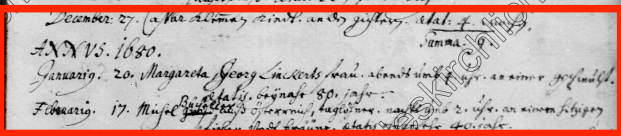 December. 27. Caspar Klumen Kindt. an den gichtern. ætat: 4.
Summa. 9
ANNVS. 1680.
Januariq. 20. Margareta Georg Linckerts frau. abends umb uhr. an einer geschwulst.
ætatis. beynaht 80. jahr.
Februariq. 17. Michel auß Österreich, taglöner, nachts umb 2. uhr. an einem hitzigen
ætatis 40. jahr.